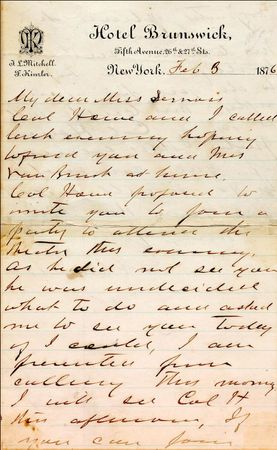 Hotel Brunswick,
Fifth Avenue, 26th & 27th Sts.
J. L. Mitchell.
F. Kinzler.
New York, Feb 3 1876
My dear Miss
Col Howe and I called
last evening hoping
to find you and Mrs
Van at home.
Col Howe proposed to
invite you to join a
party to attend the
theter this evening,
as he did not see you
he was undecided
what to do and asked
me to see you today
if I could, I am
prevented from
calling this morning
I will see Col H
this afternoon, If
you can join